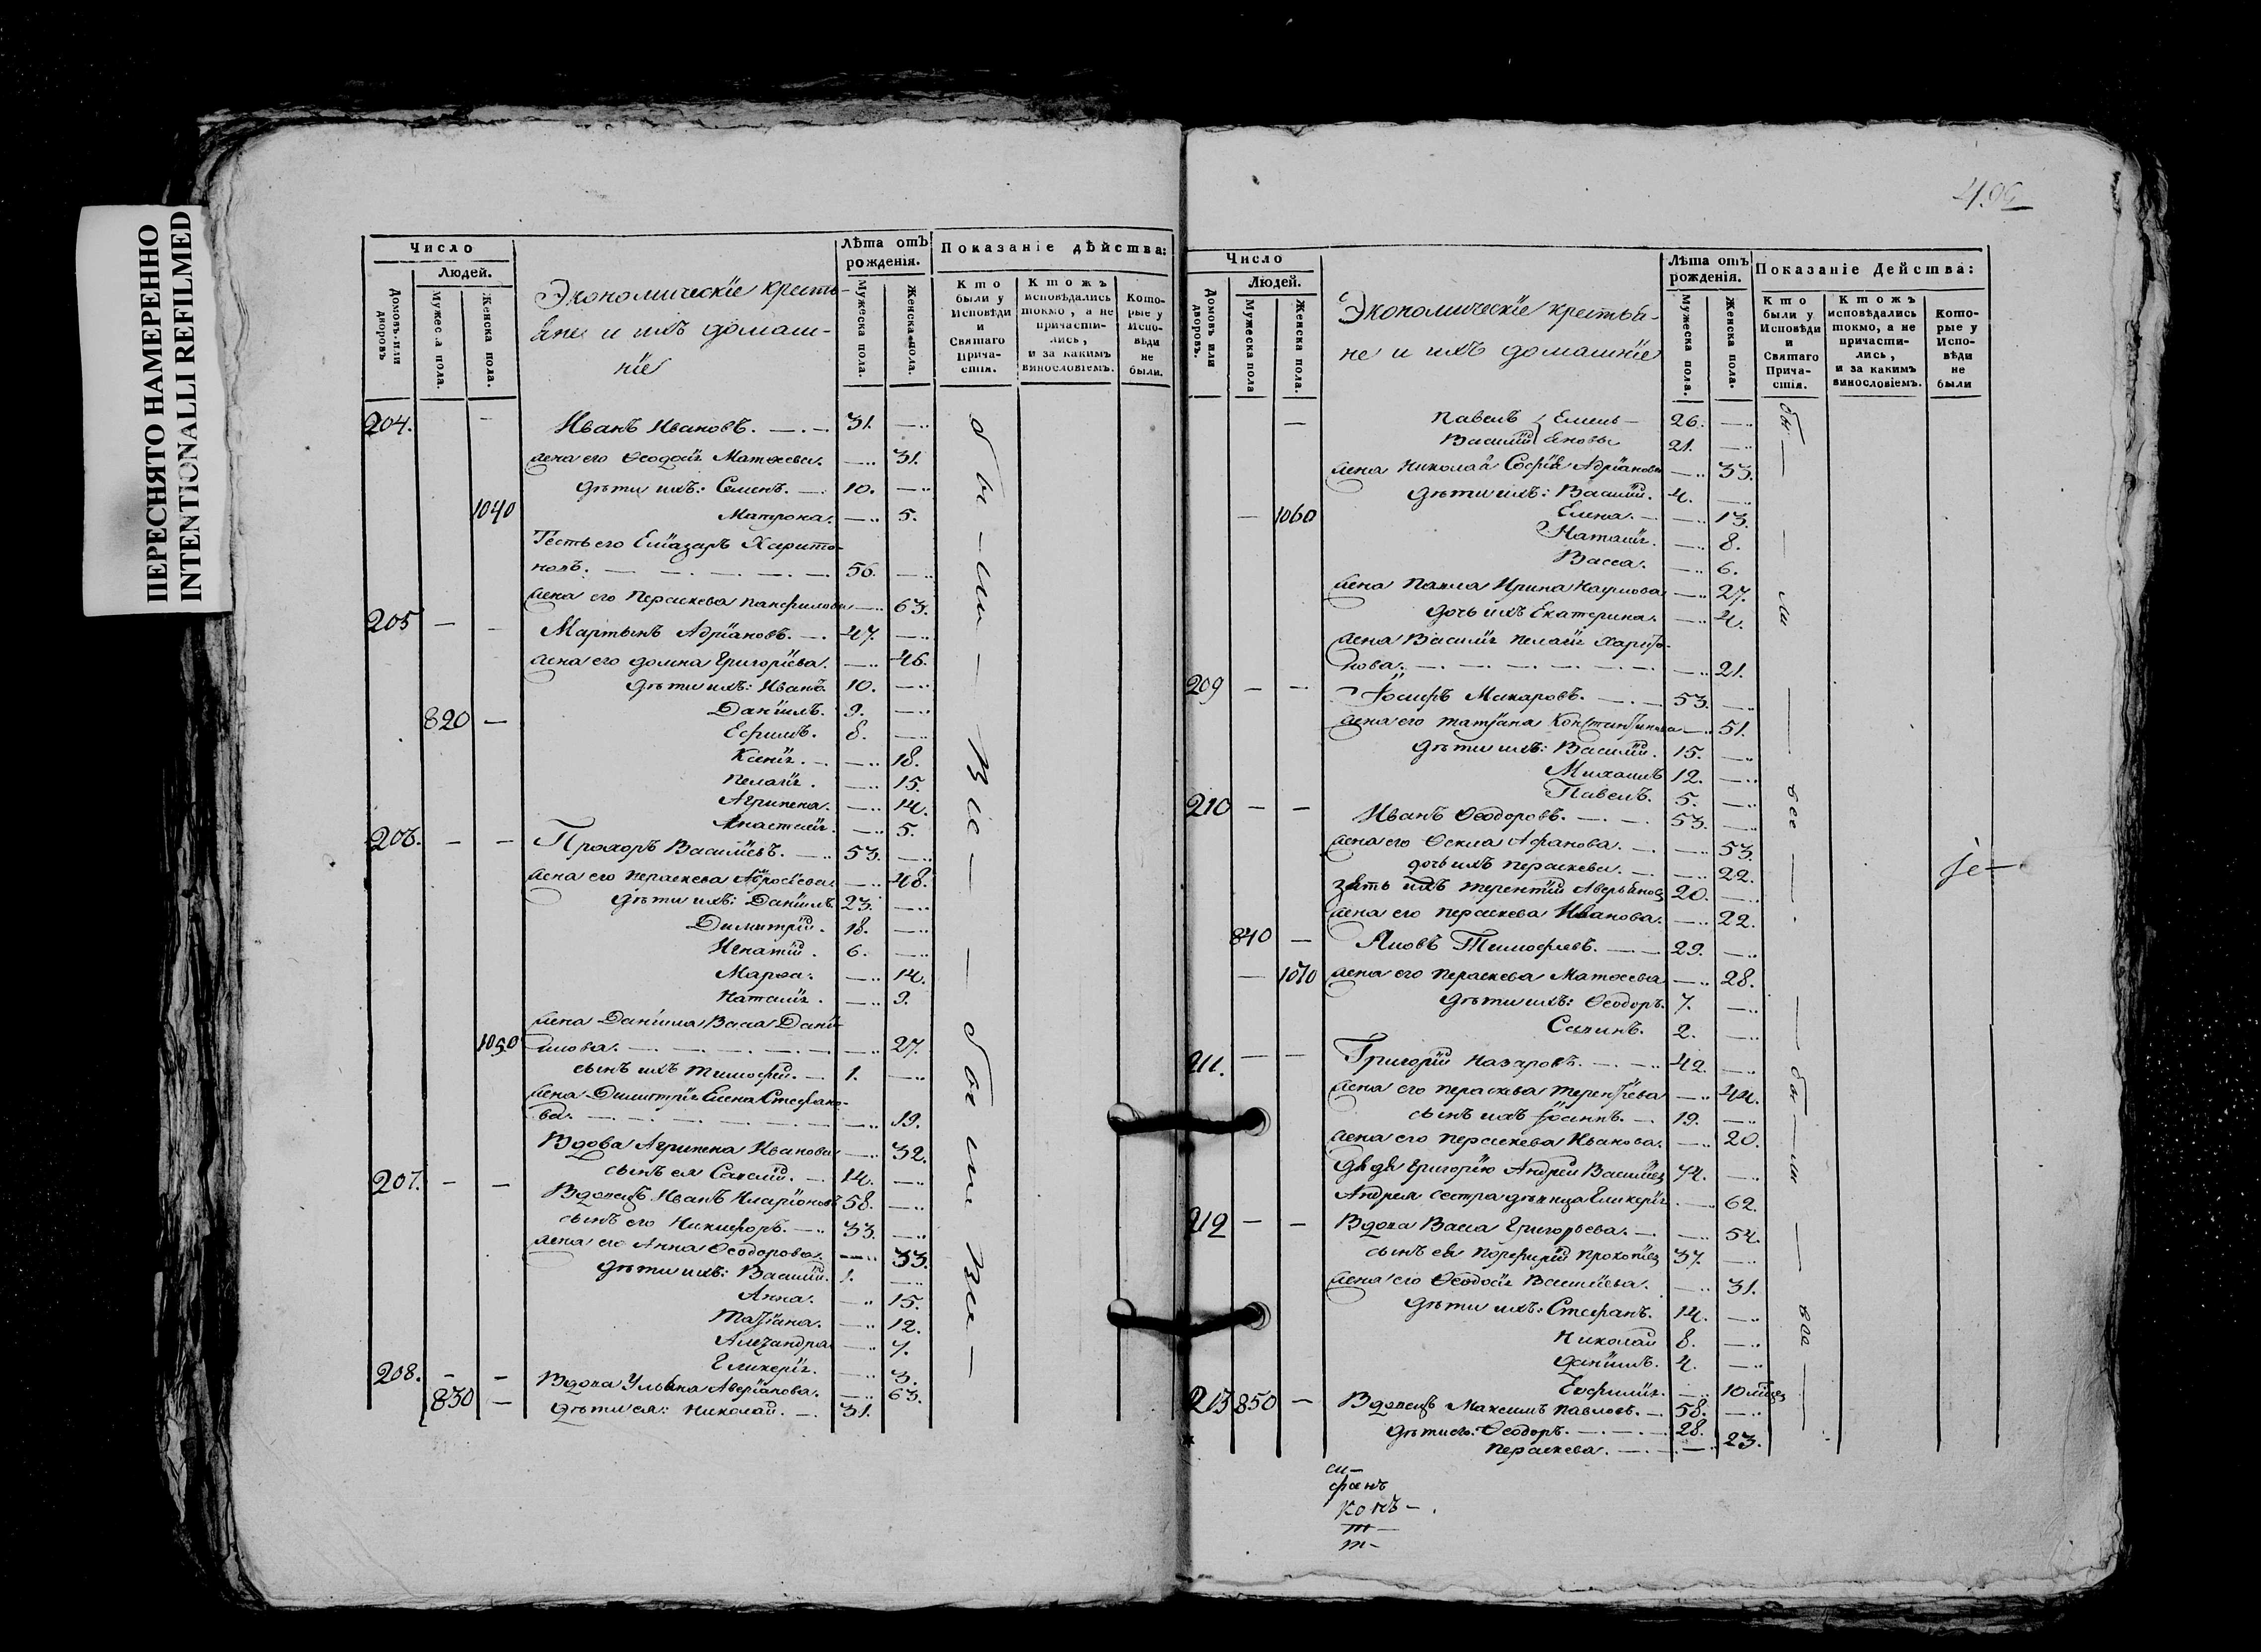 ПЕРЕСНЯТО НАМЕРЕННО
INTENTIONALLI REFILMED
Число
Людей.
Домовъ или дворовъ
Мужеска пола.
Женска пола.
Экономическїе кресть-
яне и ихъ домаш-
нїе
Лѣта отъ рожденія.
Мужеска пола.
Женска пола.
Показаніе дѣйства:
Кто были у Исповѣди и Святаго Прича-стія.
Ктожъ исповѣдались токмо, а не причасти-лись, и за какимъ винословіемъ.
Кото-рые у Испо-вѣди не были.
204. — Иванъ Ивановъ. — 31. —
жена его Ѳеодосїя Матѳеева. — 31.
дѣти ихъ: Семенъ. — 10. —
1040 Матрона. — 5.
Тесть его Елїазаръ Харито-
новъ. — 56. —
жена его Пераскева Панфилова — 63.
205 — — Мартынъ Адрїановъ. — 47. —
жена его Домна Григорїева. — 46.
дѣти ихъ: Иванъ. 10. —
Данїилъ. 9. —
820 — Ефимъ. 8. —
Ксенїя. — 18.
Пелагїя. — 15.
Агрипена. — 14.
Анастасїя. — 5.
206. — — Прохоръ Василїевъ. — 53. —
жена его Пераскева — 48.
дѣти ихъ: Данїилъ. 23. —
Димитрїй. 18. —
Игнатїй. 6. —
Марѳа. — 14.
Наталїя. — 9.
жена Данїила Васа Данї-
1050 илова. — 27.
сынъ ихъ Тимофей. — 1. —
жена Димитрїя Елена Стефано-
ва. — 19.
Вдова Агрипена Иванова — 32.
сынъ ея Савелїй. — 14. —
207. — — Вдовецъ Иванъ Иларїоновъ 58. —
сынъ его Никифоръ. — 33. —
жена его Анна Ѳеодорова. — 33.
дѣти ихъ: Василїй. 1. —
Анна. — 15.
Татїана. — 12.
Александра — 7.
Гликерїя. — 3.
208. — — Вдова Ульяна Аверїанова. — 63.
830 — дѣти ея: Николай. — 31.
бы — ли — Все — бы ли Все —
499
Число
Людей.
Домовъ или дворовъ.
Мужеска пола
Женска пола.
Экономическїе крестья-
не и ихъ домашнїе
Лѣта отъ рожденія.
Мужеска пола.
Женска пола.
Показаніе Действа:
Кто были у Исповѣди и Святаго Прича-стія.
Ктожъ исповѣдались токмо, а не причасти-лись, и за какимъ винословіемъ.
Кото-рые у Испо-вѣди не были
— Павелъ Емель- 26. —
Василїй яновы 21. —
жена Николая Софїя Адрїанова — 33.
дѣти ихъ: Василїй. 4. —
— 1060 Елена. — 13.
Наталїя. — 8.
Васса. — 6.
жена Павла Ирина Наумова — 27.
дочь ихъ Екатерина. — 4.
жена Василїя Пелагїя Харито-
нова. — 21.
209 — — Їосифъ Макаровъ. — 53. —
жена его Татїана Константинова — 51.
дѣти ихъ: Василїй. 15. —
Михаилъ 12. —
Павелъ. 5. —
210 — — Иванъ Ѳеодоровъ. — 53. —
жена его Ѳекла — 53.
дочь ихъ Пераскева. — 22.
зять ихъ Терентїй Аверьяновъ 20. —
жена его Пераскева Иванова. — 22.
840 — Яковъ Тимофеевъ. — 29. —
— 1070 жена его Пераскева Матѳеева — 28.
дѣти ихъ: Ѳеодоръ. 7. —
Савинъ. 2. —
211. — — Григорїй Назаровъ. — 42. —
жена его Пераскева Терентїева — 44.
сынъ ихъ Їоаннъ. — 19. —
жена его Пераскева Иванова. — 20.
дядя Григорїю Андрей Василїевъ 74. —
Андрея сестра девица Гликерїя — 62.
212 — — Вдова Васса Григорьева. — 54.
сынъ ея Порфирїй Прокопїевъ 37. —
жена его Ѳеодосїя Василїева. — 31.
дѣти ихъ: Стефанъ. 14. —
Николай 8. —
Данїилъ. 4. —
Евфимїя. — 10
213 850 — Вдовецъ Максимъ Павловъ. — 58. —
дѣти его: Ѳеодоръ. — 28.
Пераскева. — 23.
бы — ли — все — бы — ли — все —
си-
фанъ
конъ-
т-
т-